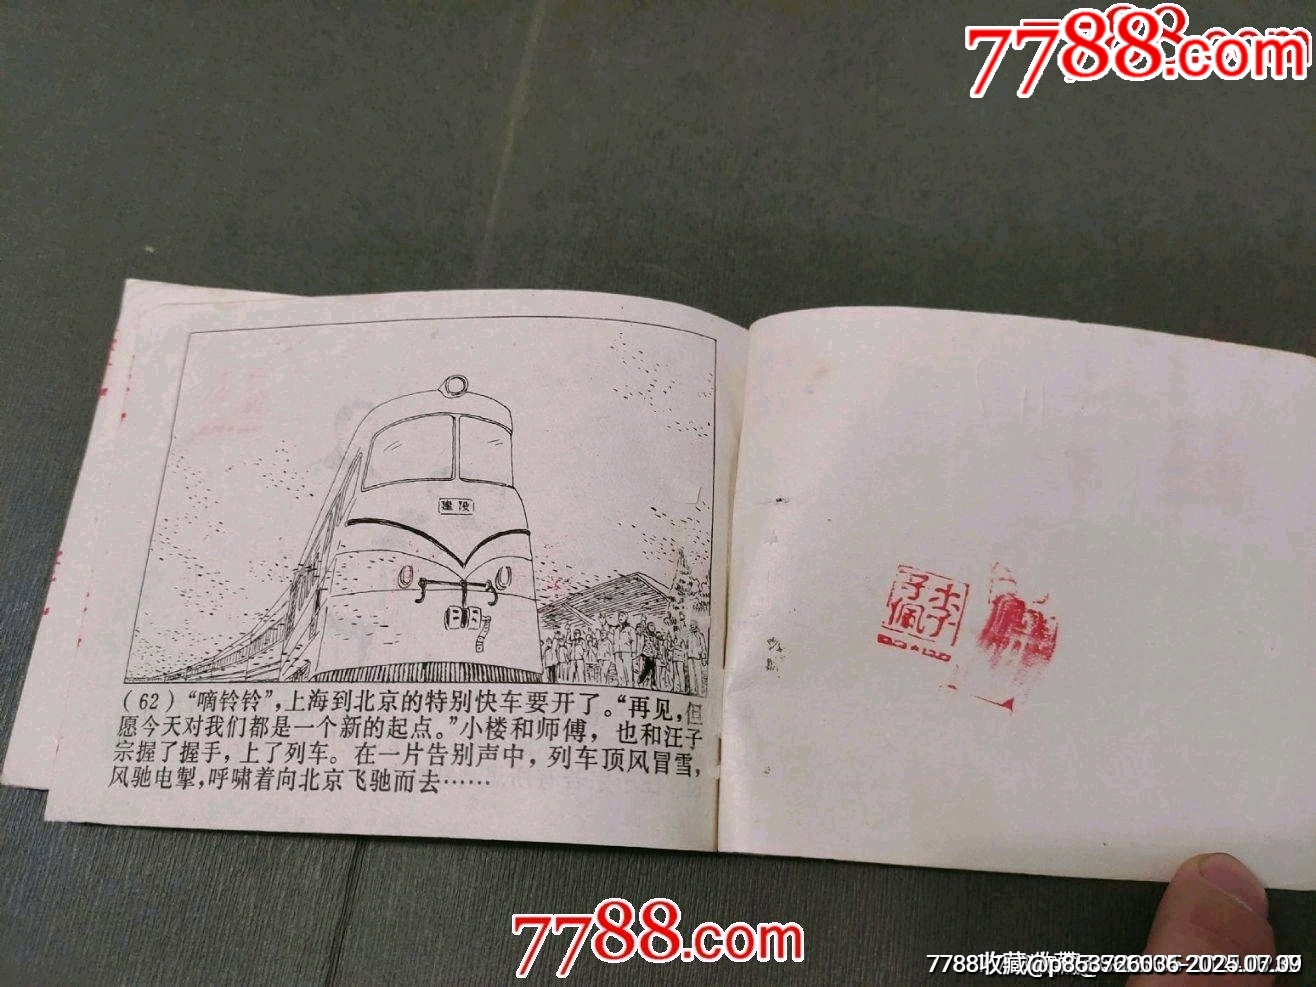 7788.com
建设
(62)“嘀铃铃”，上海到北京的特别快车要开了。“再见，但
愿今天对我们都是一个新的起点。”小楼和师傅，也和汪子
宗握了握手，上了列车。在一片告别声中，列车顶风冒雪，
风驰电掣，呼啸着向北京飞驰而去……
李子佩
7788.com
7788收藏@p853726036-2025.07.09